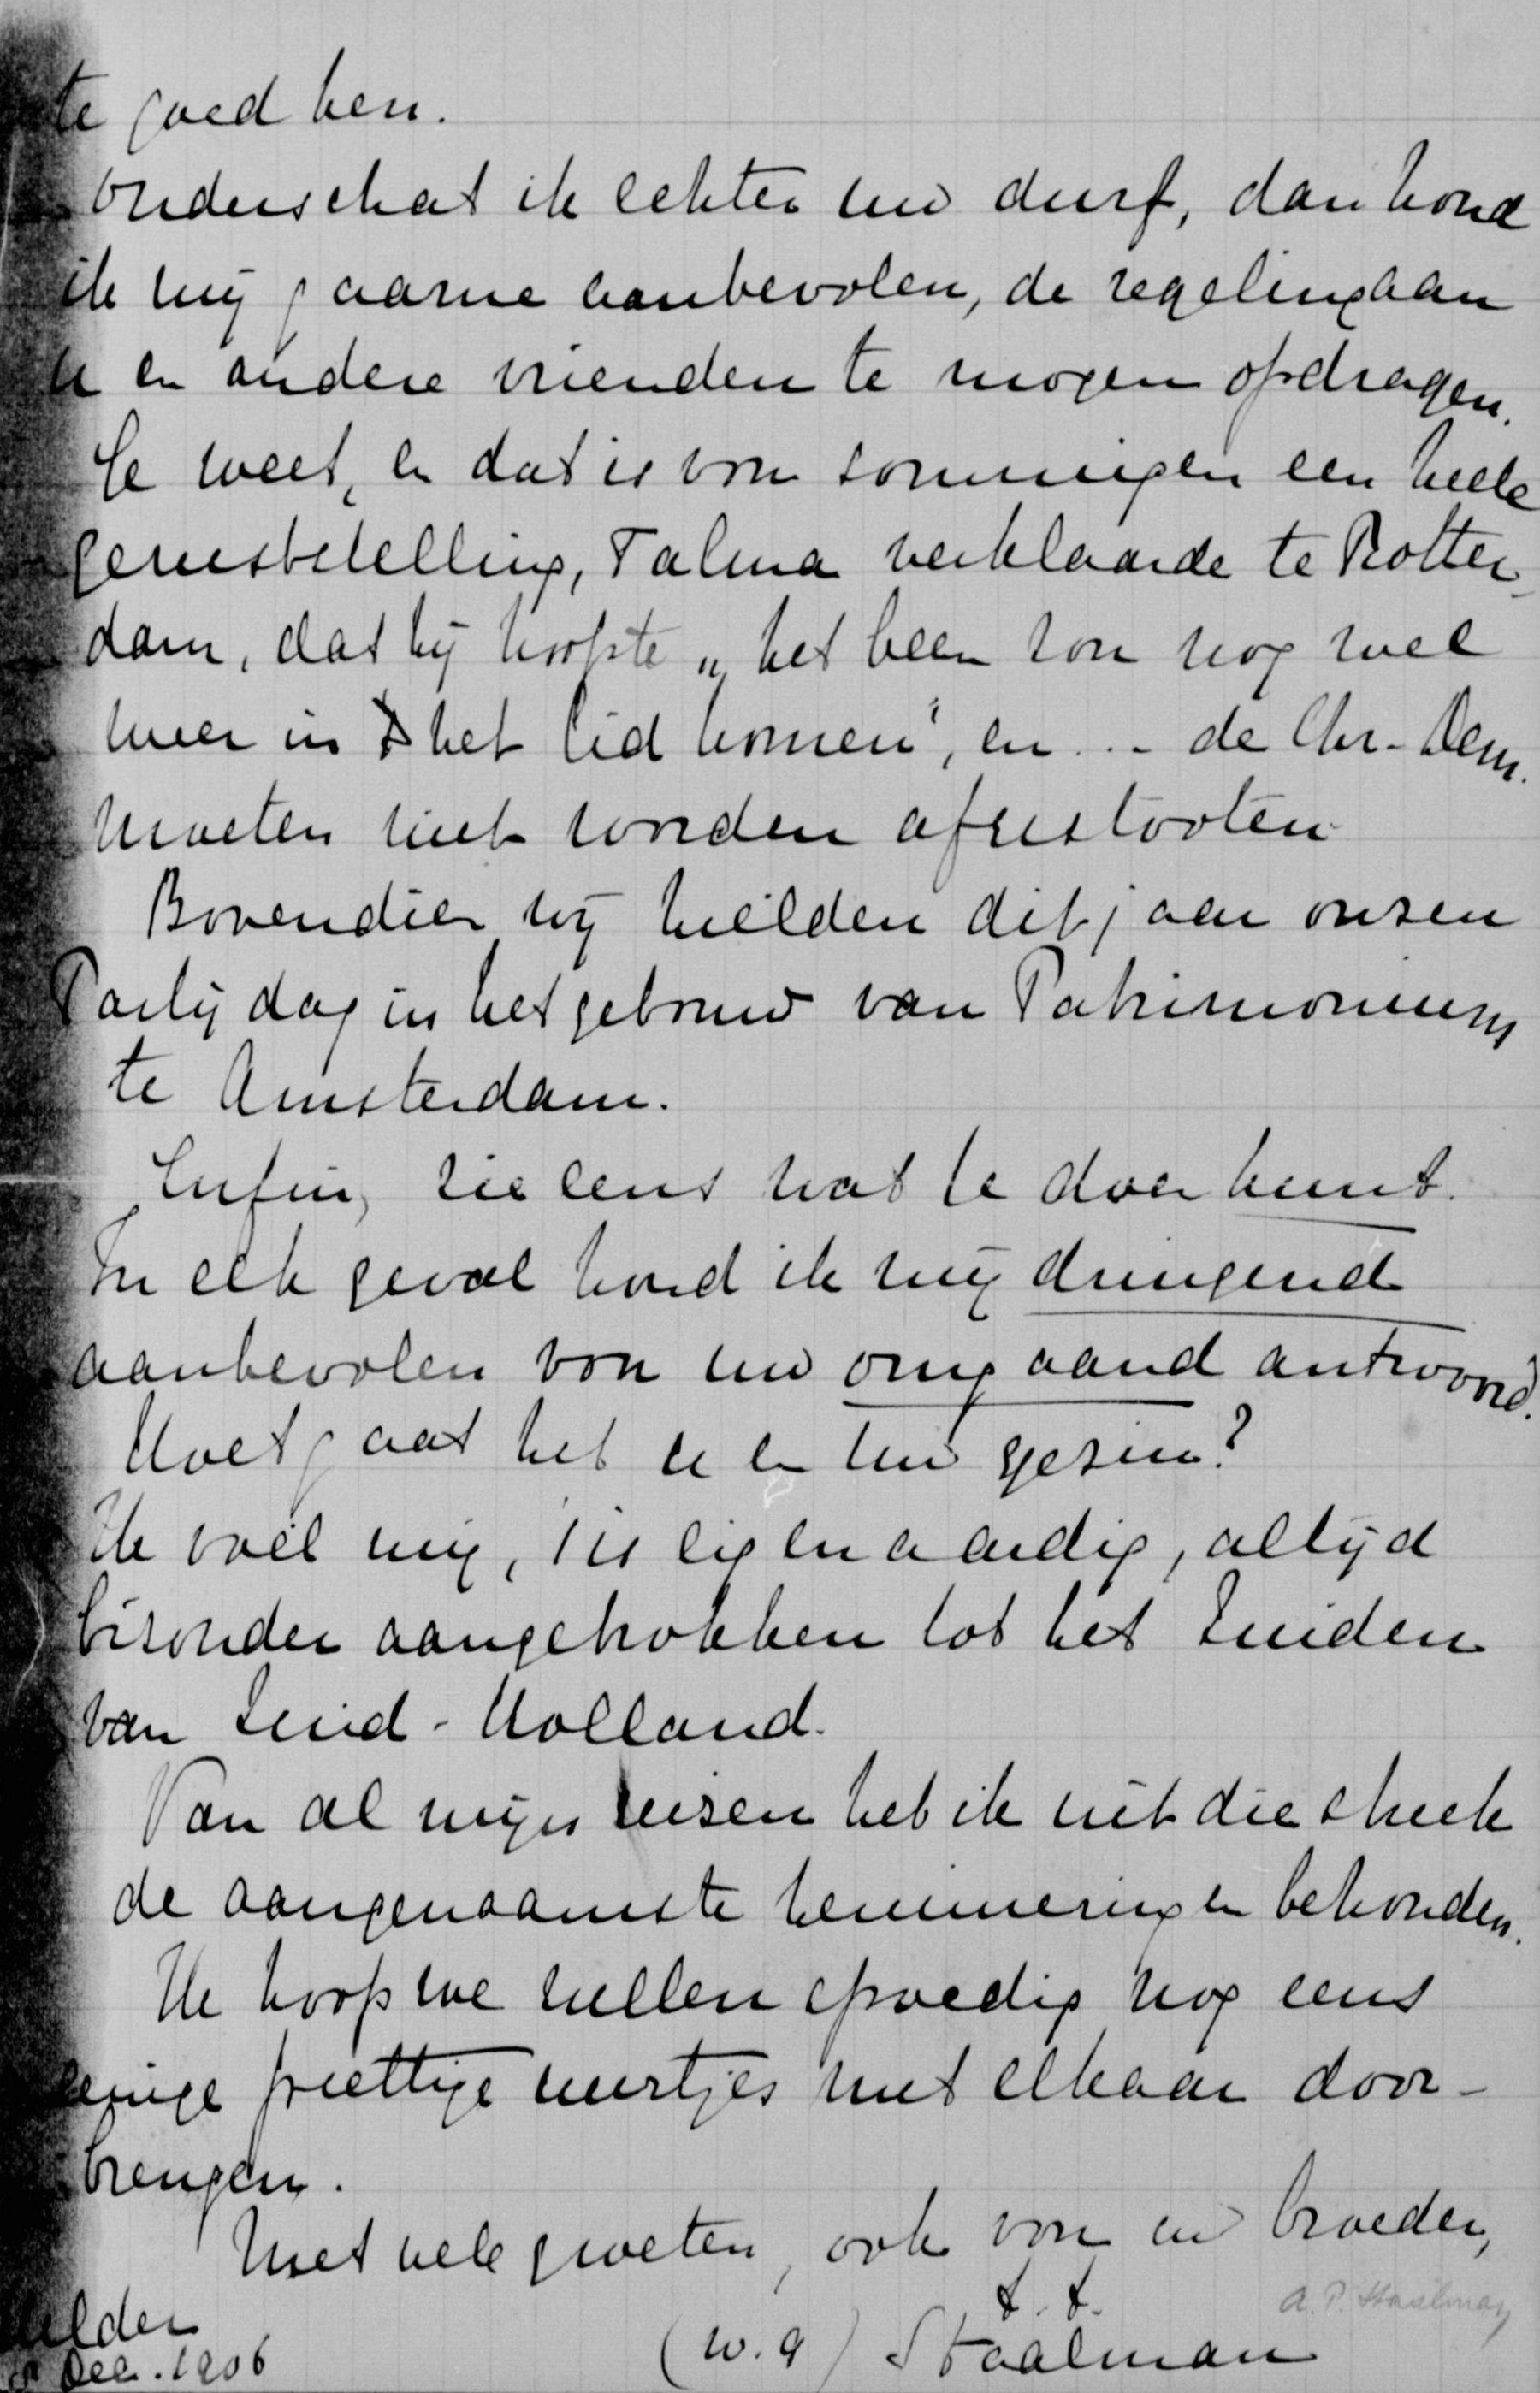 te goed ken.
Onderschat ik echter uw durf, dan houd
ik mij gaarne aanbevolen, de regeling aan
u en andere vrienden te mogen opdragen.
Ge weet, en dat is voor sommigen een heele
geruststelling, Talma verklaarde te Rotter-
dam, dat hij hoopte „het been zou nog wel
weer in het lid komen", en ... de Chr.-Dem.
moeten niet worden afgestooten
Bovendien wij hielden dit jaar onzen
Partijdag in het gebouw van Patrimonium
te Amsterdam.
Enfin, zie eens wat ge doen kunt.
In elk geval houd ik mij dringend
aanbevolen voor uw omgaand antwoord.
Hoe gaat het u en uw gezin?
Ik voel mij, 't is eigenaardig, altijd
bizonder aangetrokken tot het Zuiden
van Zuid-Holland.
Van al mijn reizen heb ik uit die streek
de aangenaamste herinneringen behouden.
Ik hoop we zullen spoedig nog eens
eenige prettige uurtjes met elkaar door-
brengen.
Met vele groeten, ook voor uw broeder,
t. t.
A. P. Staalman
(w. g) Staalman
Helder
Dec. 1906